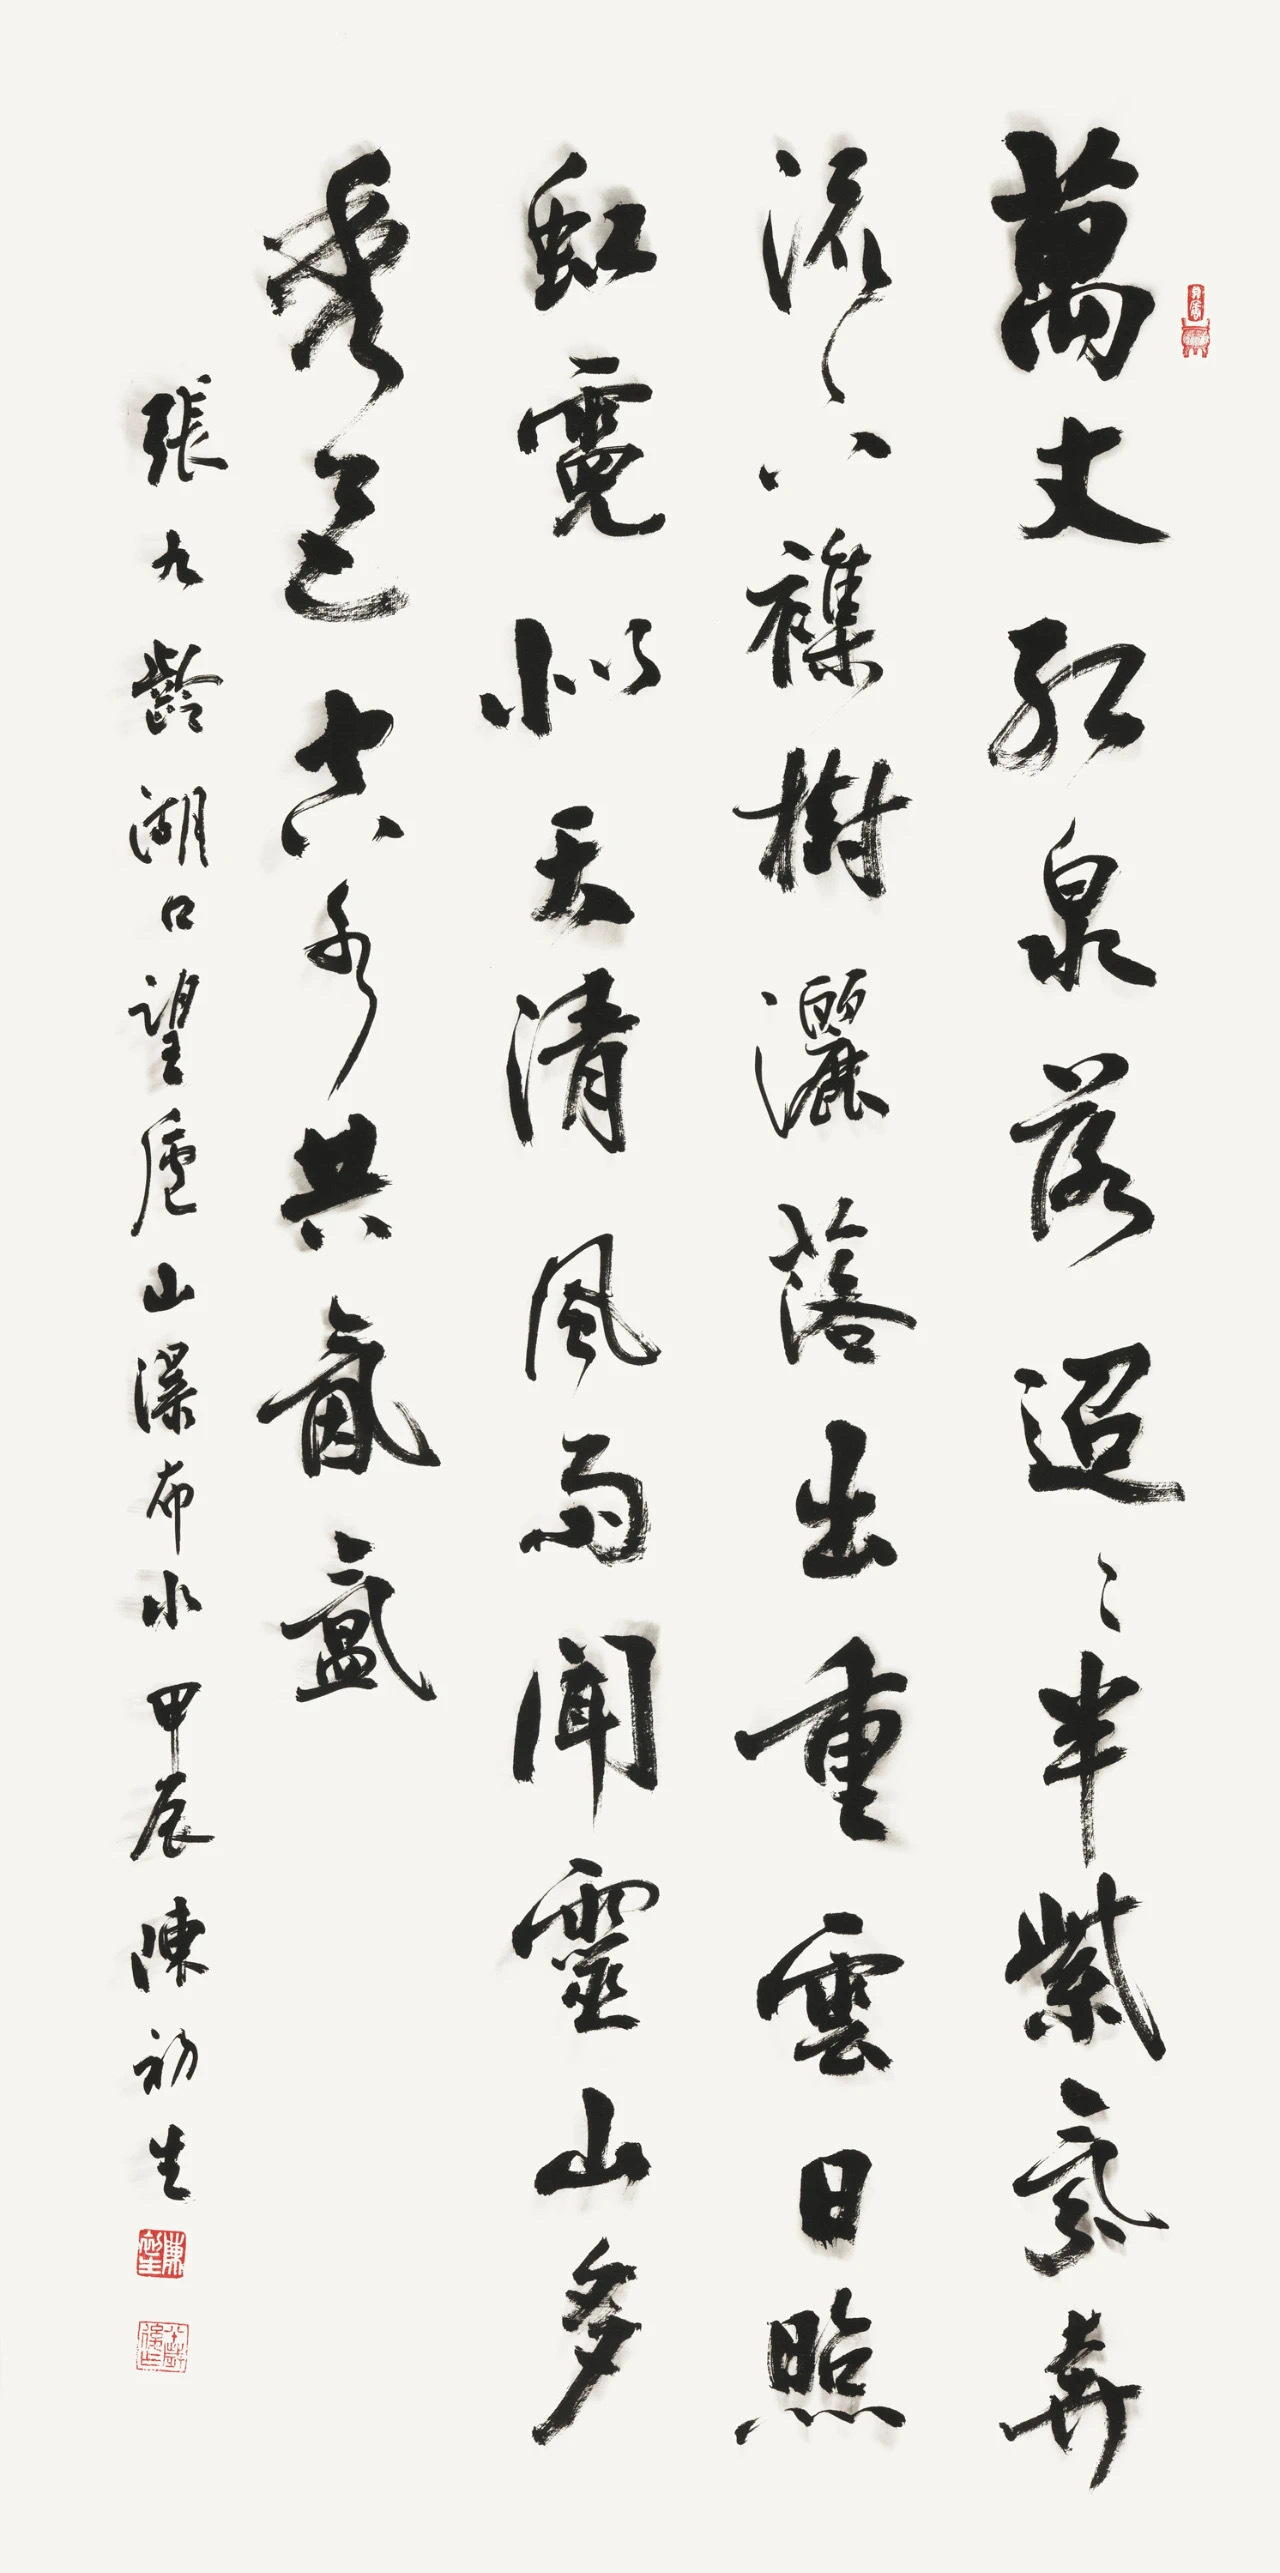 萬丈紅泉落迢〻半紫氛奔
流〻下雜樹灑落出重雲日照
虹霓似天清風雨聞靈山多
秀色空水共氤氳
張九齡湖口望廬山瀑布水 甲辰 陳初生
陳初生